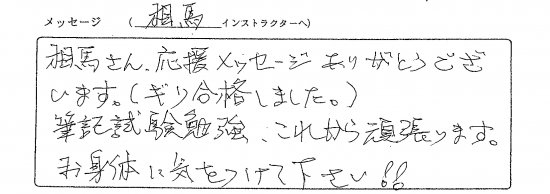 メッセージ （ 相馬 インストラクターへ）
相馬さん、応援メッセージありがとうござ
います。（ギリ合格しました。）
筆記試験勉強、これから頑張ります。
お身体に気をつけて下さい!!